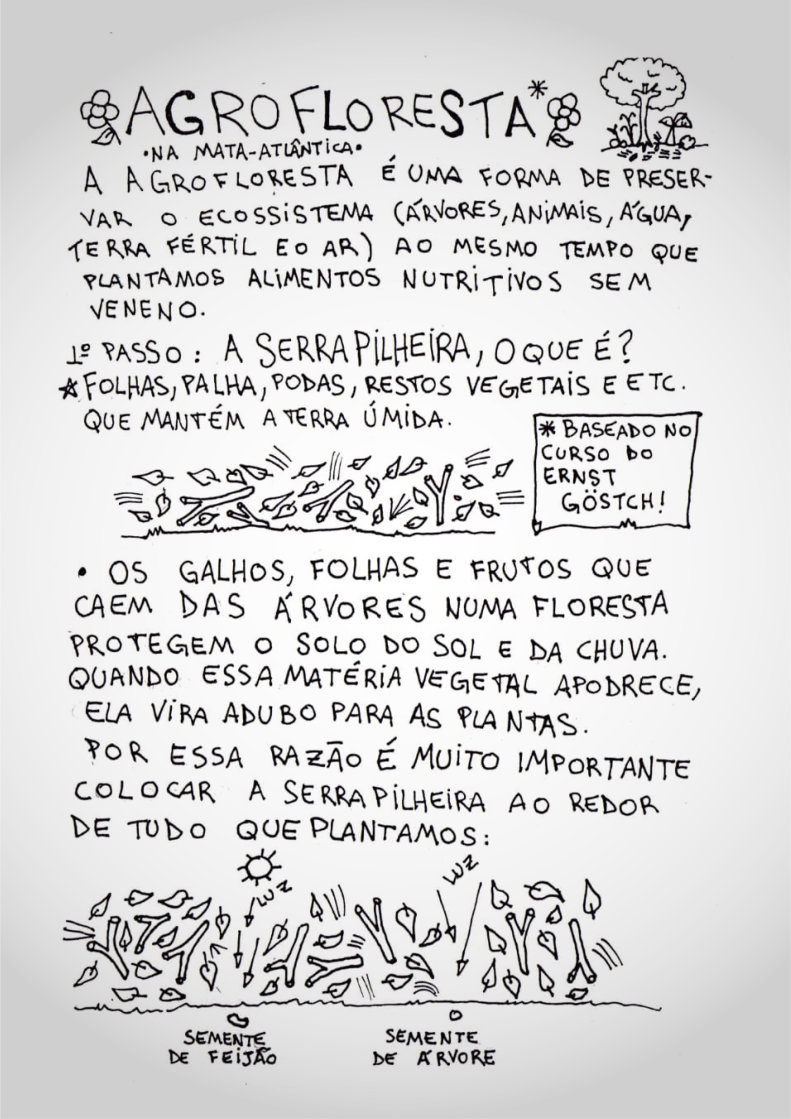 AGROFLORESTA*
•NA MATA-ATLÂNTICA•
A AGROFLORESTA É UMA FORMA DE PRESER-
VAR O ECOSSISTEMA (ÁRVORES, ANIMAIS, ÁGUA,
TERRA FÉRTIL E O AR) AO MESMO TEMPO QUE
PLANTAMOS ALIMENTOS NUTRITIVOS SEM
VENENO.
1º PASSO: A SERRAPILHEIRA, O QUE É?
★FOLHAS, PALHA, PODAS, RESTOS VEGETAIS E ETC.
QUE MANTÉM A TERRA ÚMIDA.
* BASEADO NO
CURSO DO
ERNST
GÖSTCH!
• OS GALHOS, FOLHAS E FRUTOS QUE
CAEM DAS ÁRVORES NUMA FLORESTA
PROTEGEM O SOLO DO SOL E DA CHUVA.
QUANDO ESSA MATÉRIA VEGETAL APODRECE,
ELA VIRA ADUBO PARA AS PLANTAS.
POR ESSA RAZÃO É MUITO IMPORTANTE
COLOCAR A SERRAPILHEIRA AO REDOR
DE TUDO QUE PLANTAMOS:
LUZ
LUZ
SEMENTE
DE FEIJÃO
SEMENTE
DE ÁRVORE